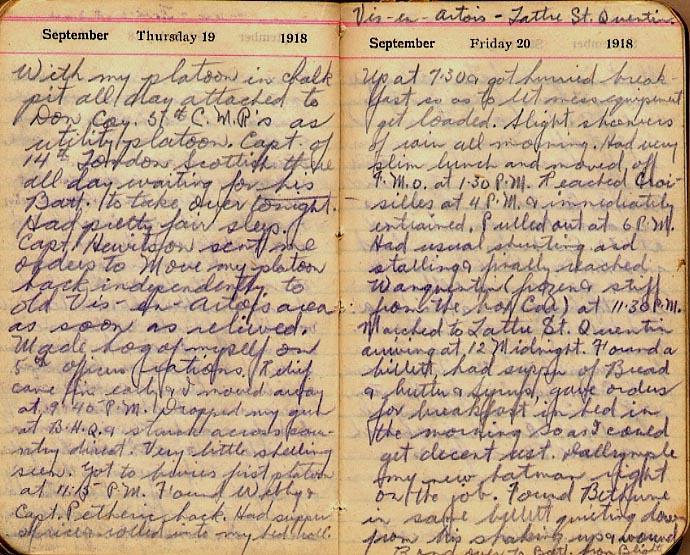 September Thursday 19 1918
With my platoon in chalk
pit all day attached to
Don Coy. 5th C.M.R's as
utility platoon. Capt. of
14th London Scottish there
all day waiting for his
Batt. to take over tonight.
Had pretty fair sleep.
Capt. Hewitson sent me
orders to Move my platoon
back independently to
old Vis-en-Artois area
as soon as relieved.
Made hog of myself on
5th officers rations. Relief
came in early & I moved away
at 9:40 P.M. Dropped my gun
at B.H.Q. & struck across coun-
try direct. Very little shelling
seen. Got to bivvies first platoon
at 11:15 P.M. Found Webby &
Capt. Petherick back. Had supper
& rolled into my bed roll.
Vis-en-Artois - Lattre St. Quentin
September Friday 20 1918
Up at 7:30 & got hurried break-
fast so as to let mess equipment
get loaded. Slight showers
of rain all morning. Had very
slim lunch and moved off
at 1:30 P.M. Reached Croi-
silles at 4 P.M. & immediately
entrained. Pulled out at 6 P.M.
Had usual shunting and
stalling & finally reached
Wanquentin (frozen & stiff
from the box Car) at 11:30 P.M.
Marched to Lattre St. Quentin
arriving at 12 Midnight. Found a
billett, had supper of Bread
& butter & syrup, gave orders
for breakfast in bed in
the morning so as I could
get decent rest. Dallymple
my new batman right
on the job. Found Bethune
in same billett quieting down
from his shaking up & wound